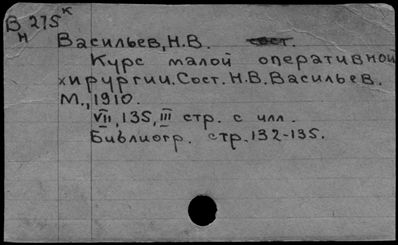 В 275 к
н
Васильев, Н.В. сост.
Курс малой оперативной
хирургии. Сост. Н.В. Васильев.
М., 1910.
VII, 135, III стр. с илл.
Библиогр. стр. 132-135.